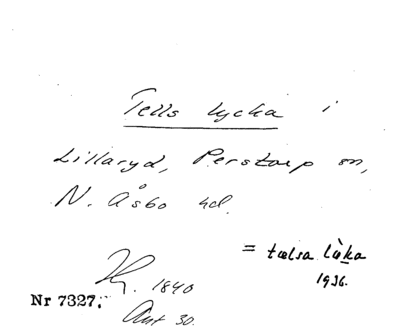 Tells lycka i
Lillaryd, Perstorp sn,
N. Åsbo hd.
= tælsa lùka
1936.
1840
Nr 7327.
Akt 30.